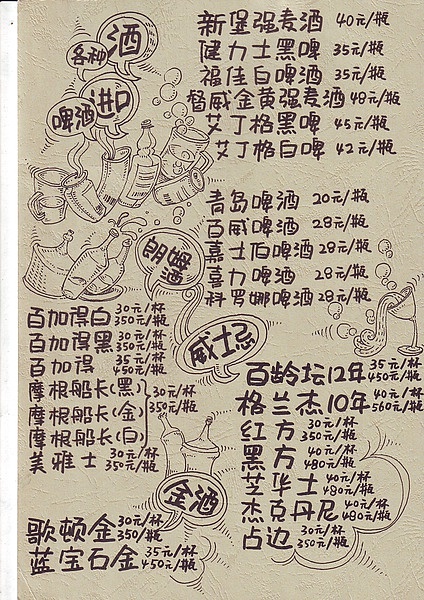 各种
酒
啤酒
进口
新堡强麦酒 40元/瓶
健力士黑啤 35元/瓶
福佳白啤酒 35元/瓶
督威金黄强麦酒 48元/瓶
艾丁格黑啤 45元/瓶
艾丁格白啤 42元/瓶
青岛啤酒 20元/瓶
百威啤酒 28元/瓶
嘉士伯啤酒 28元/瓶
喜力啤酒 28元/瓶
科罗娜啤酒 28元/瓶
朗姆酒
百加得白 30元/杯 350元/瓶
百加得黑 30元/杯 350元/瓶
百加得 35元/杯 450元/瓶
摩根船长(黑)
摩根船长(金) 30元/杯 350元/瓶
摩根船长(白)
美雅士 30元/杯 350元/瓶
威士忌
百龄坛12年 35元/杯 450元/瓶
格兰杰10年 40元/杯 560元/瓶
红方 30元/杯 350元/瓶
黑方 40元/杯 480元/瓶
芝华士 40元/杯 480元/瓶
杰克丹尼 40元/杯 480元/瓶
占边 30元/杯 350元/瓶
金酒
歌顿金 30元/杯 350/瓶
蓝宝石金 35元/杯 450元/瓶